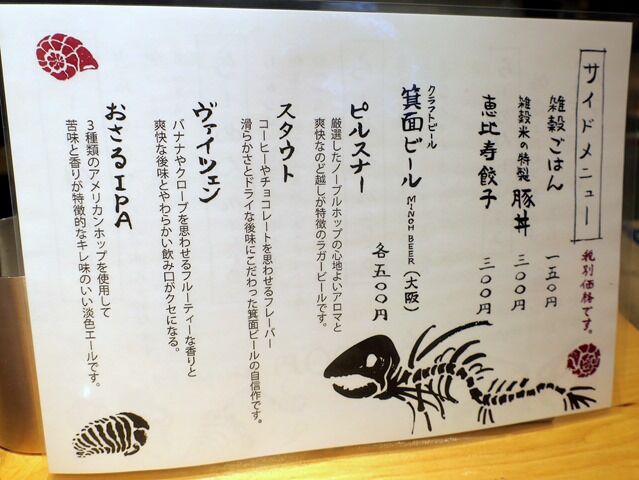 サイドメニュー
税別価格です。
雑穀ごはん 一五〇円
雑穀米の特製 豚丼 三〇〇円
恵比寿餃子 三〇〇円
クラフトビール
箕面ビール MINOH BEER (大阪) 各五〇〇円
ピルスナー
厳選したノーブルホップの心地よいアロマと
爽快なのど越しが特徴のラガービールです。
スタウト
コーヒーやチョコレートを思わせるフレーバー
滑らかさとドライな後味にこだわった箕面ビールの自信作です。
ヴァイツェン
バナナやクローブを思わせるフルーティーな香りと
爽快な後味とやわらかい飲み口がクセになる。
おさるIPA
3種類のアメリカンホップを使用して
苦味と香りが特徴的なキレ味のいい淡色エールです。